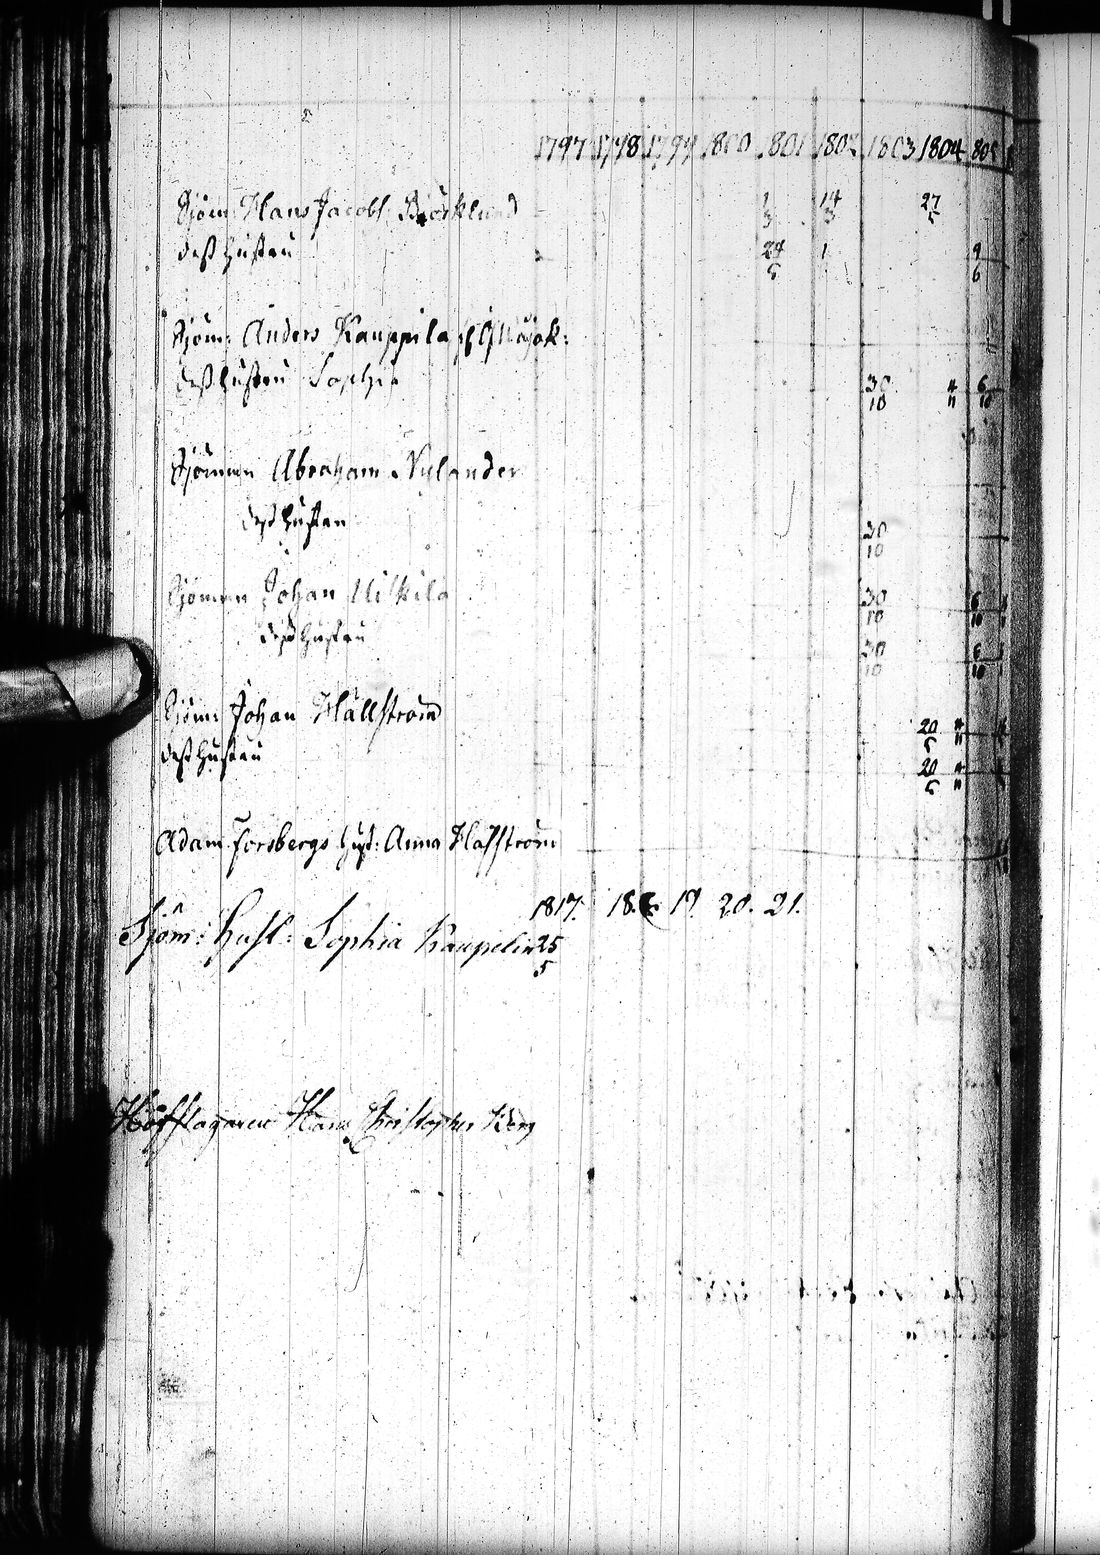 1797 1798 1799 1800 1801 1802 1803 1804 805
Sjöm: Hans Jacobss: Björklund 1/3 14/3 27/5
dess hustru 24/5 1 9/6
Sjöm: Anders Kauppila
dess hustru Sophia 30/10 4/11 6/10
Sjöman Abraham Nylander
dess hustru 30/10
Sjöman Johan Uiskila 30/10 6/10
dess hustru 30/10 6/10
Sjöm: Johan Hällström 20/5 4/11
dess hustru 20/5 4/11
Adam Forsbergs hust: Anna Hallström
1817. 18. 19. 20. 21.
Sjöm: Hust: Sophia Kaupelin 25/5
Hofslagaren Hans Christopher Berg